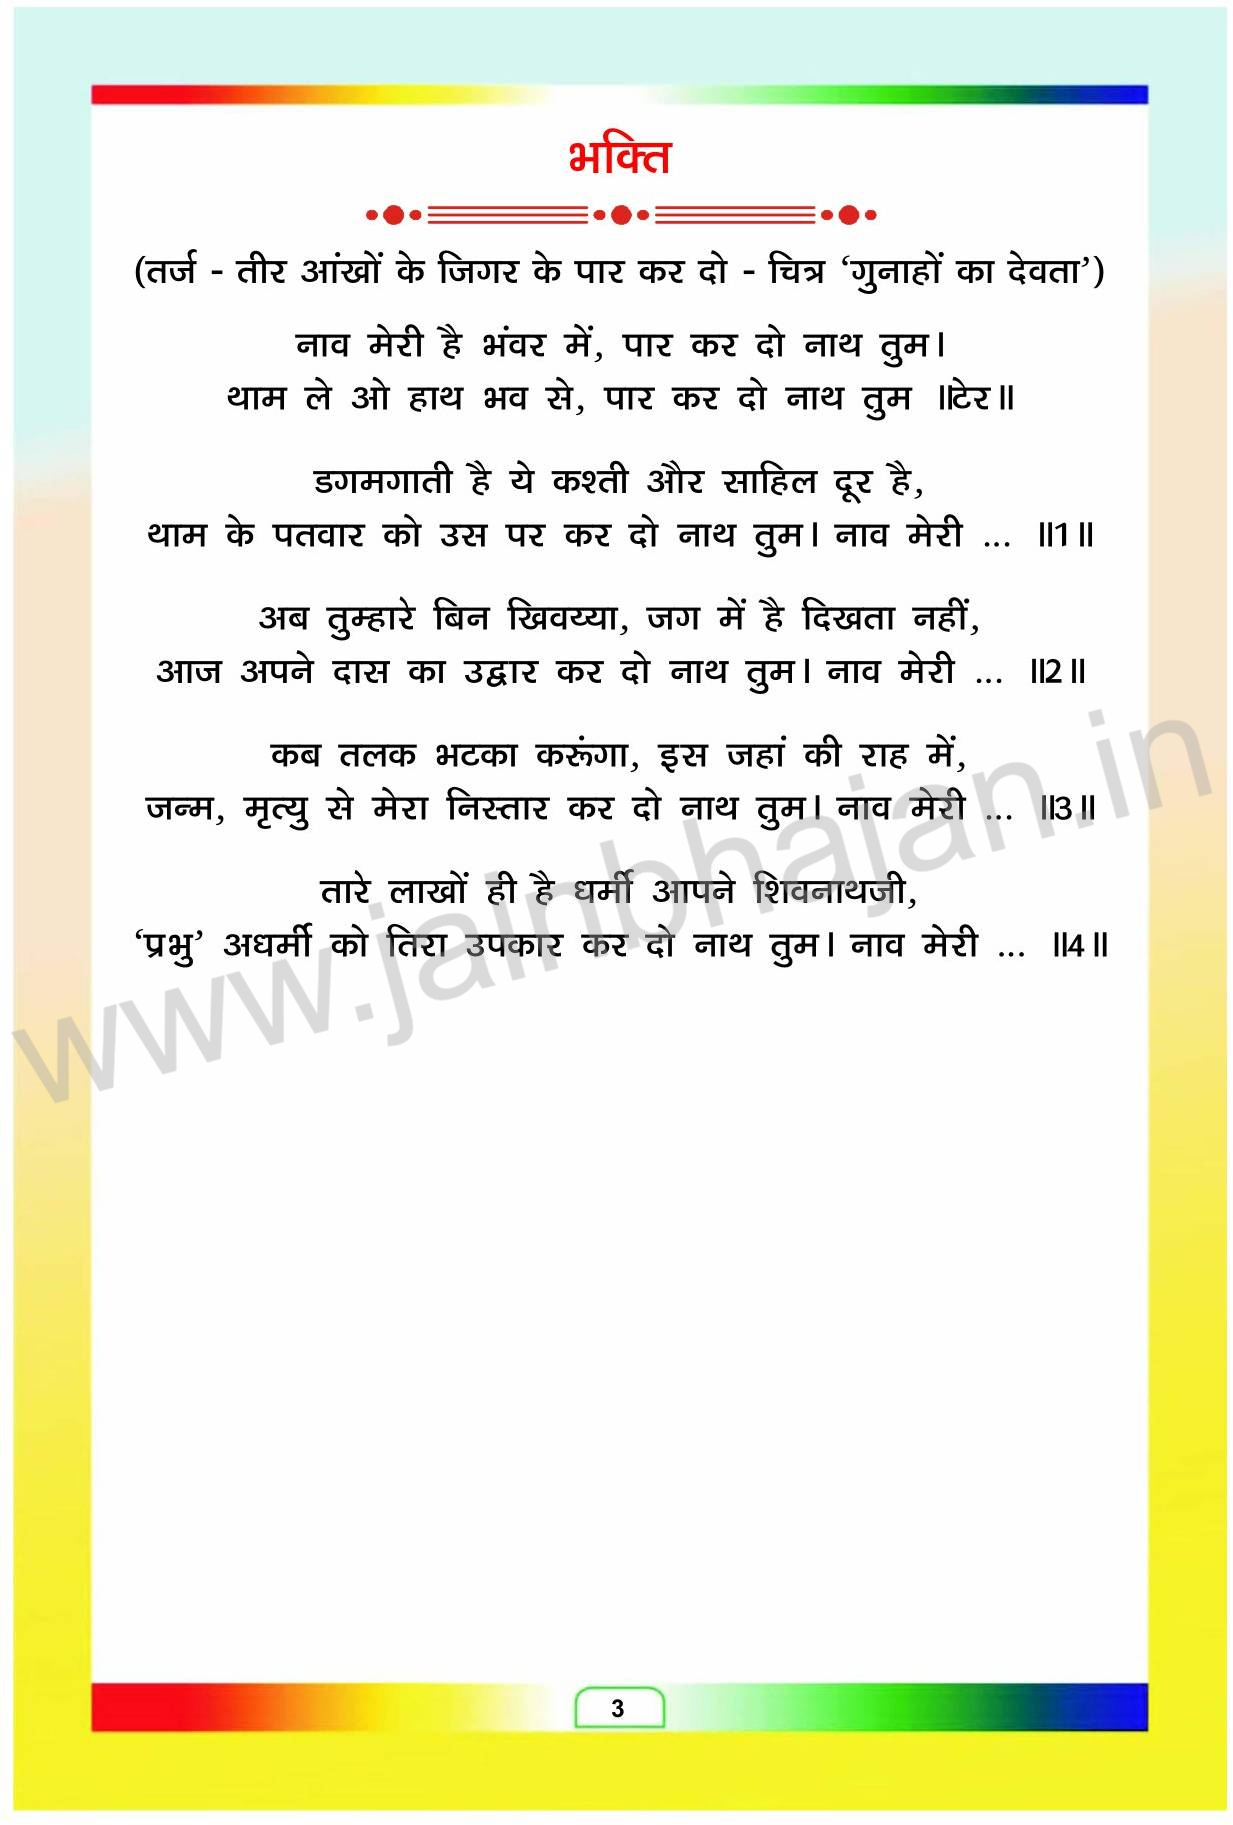 भक्ति
(तर्ज - तीर आंखों के जिगर के पार कर दो - चित्र ‘गुनाहों का देवता’)
नाव मेरी है भंवर में, पार कर दो नाथ तुम।
थाम ले ओ हाथ भव से, पार कर दो नाथ तुम ॥टेर॥
डगमगाती है ये कश्ती और साहिल दूर है,
थाम के पतवार को उस पर कर दो नाथ तुम। नाव मेरी ... ॥1॥
अब तुम्हारे बिन खिवय्या, जग में है दिखता नहीं,
आज अपने दास का उद्वार कर दो नाथ तुम। नाव मेरी ... ॥2॥
कब तलक भटका करूंगा, इस जहां की राह में,
जन्म, मृत्यु से मेरा निस्तार कर दो नाथ तुम। नाव मेरी ... ॥3॥
तारे लाखों ही है धर्मी आपने शिवनाथजी,
‘प्रभु’ अधर्मी को तिरा उपकार कर दो नाथ तुम। नाव मेरी ... ॥4॥
www.jainbhajan.in
3